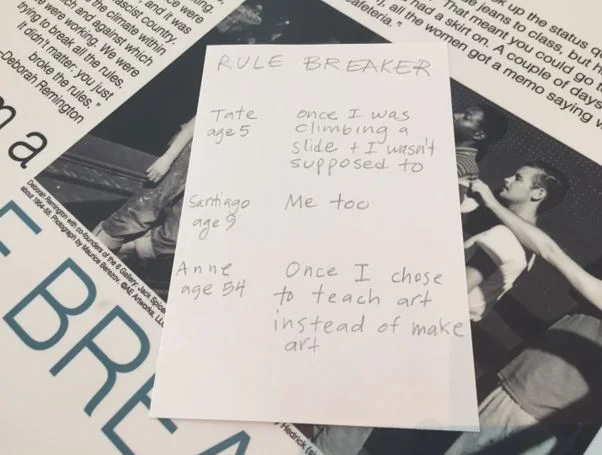 were
and it was
fascist country.
the climate within
and against which
were working. We were
trying to break all the rules.
It didn't matter: you just
broke the rules."
—Deborah Remington
up the status
jeans to class, but
That meant you could go
had a skirt on. A couple of days
all the women got a memo saying
cafeteria."
RULE BREAKER
Tate age 5
once I was
climbing a
slide + I wasn't
supposed to
Santiago age 9
Me too
Anne age 54
Once I chose
to teach art
instead of make
art
a
Deborah Remington with co-founders of the 6 Gallery: Jack
about 1954-55. Photograph by Maurice Berezov. ©AE Artworks,
E BREA
Hedrick